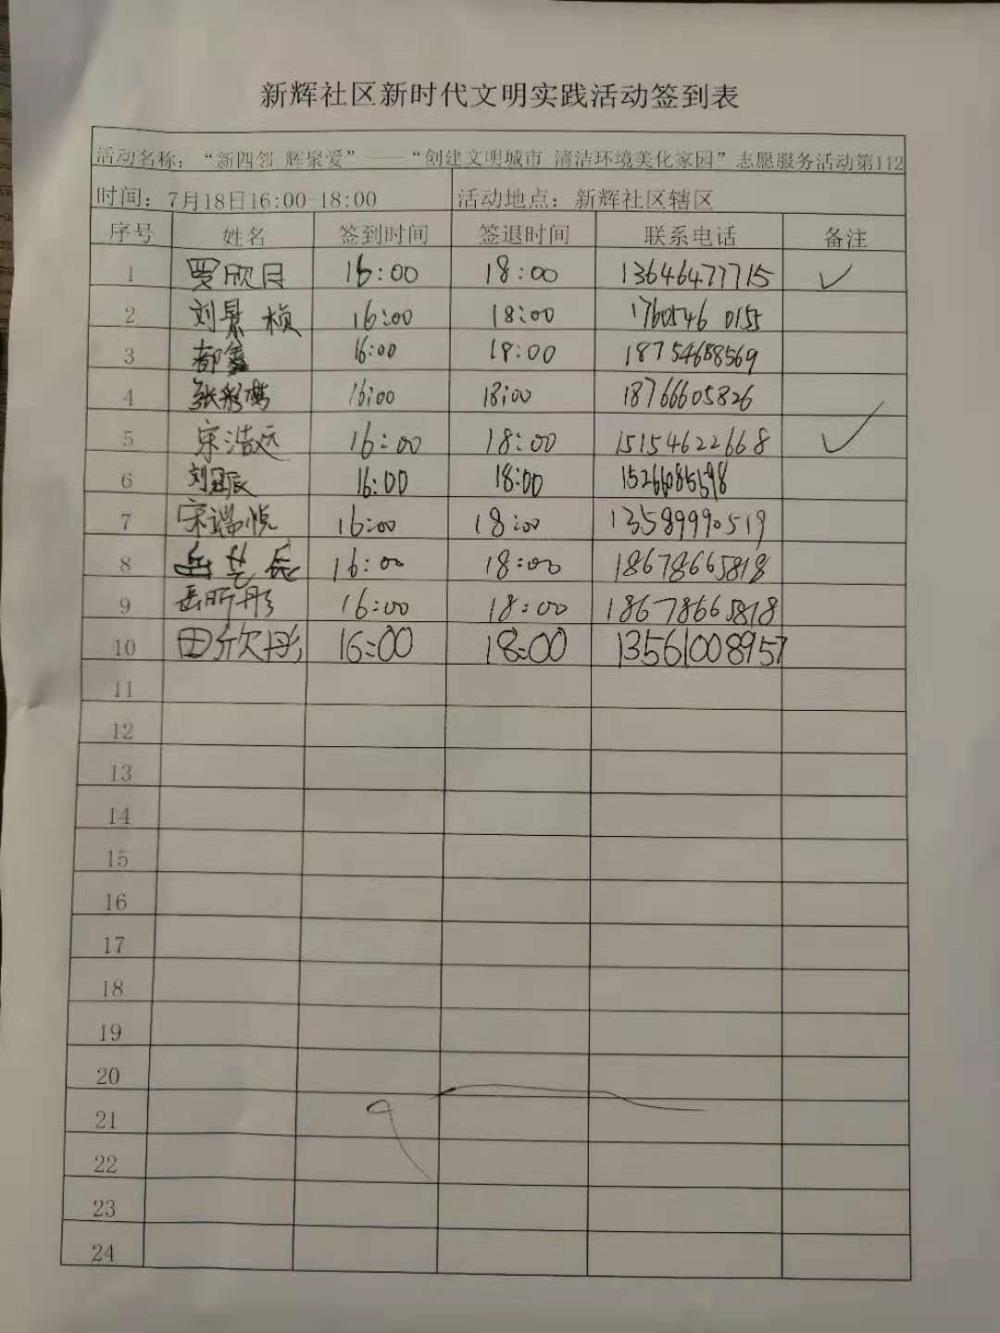 新辉社区新时代文明实践活动签到表
活动名称：“新四邻 辉聚爱”——“创建文明城市 清洁环境美化家园”志愿服务活动第112
时间：7月18日16:00-18:00 活动地点：新辉社区辖区
序号 姓名 签到时间 签退时间 联系电话 备注
1 罗欣月 16:00 18:00 13646477715 ✓
2 刘景桢 16:00 18:00 17605460155
3 郝鑫 16:00 18:00 18754688569
4 张彩 16:00 18:00 18766605826
5 宋浩远 16:00 18:00 15154622668 ✓
6 刘昱辰 16:00 18:00 15266085598
7 宋端悦 16:00 18:00 13589990519
8 岳艺辰 16:00 18:00 18678665818
9 岳昕彤 16:00 18:00 18678665818
10 田欣彤 16:00 18:00 13561008957
11
12
13
14
15
16
17
18
19
20
21
22
23
24